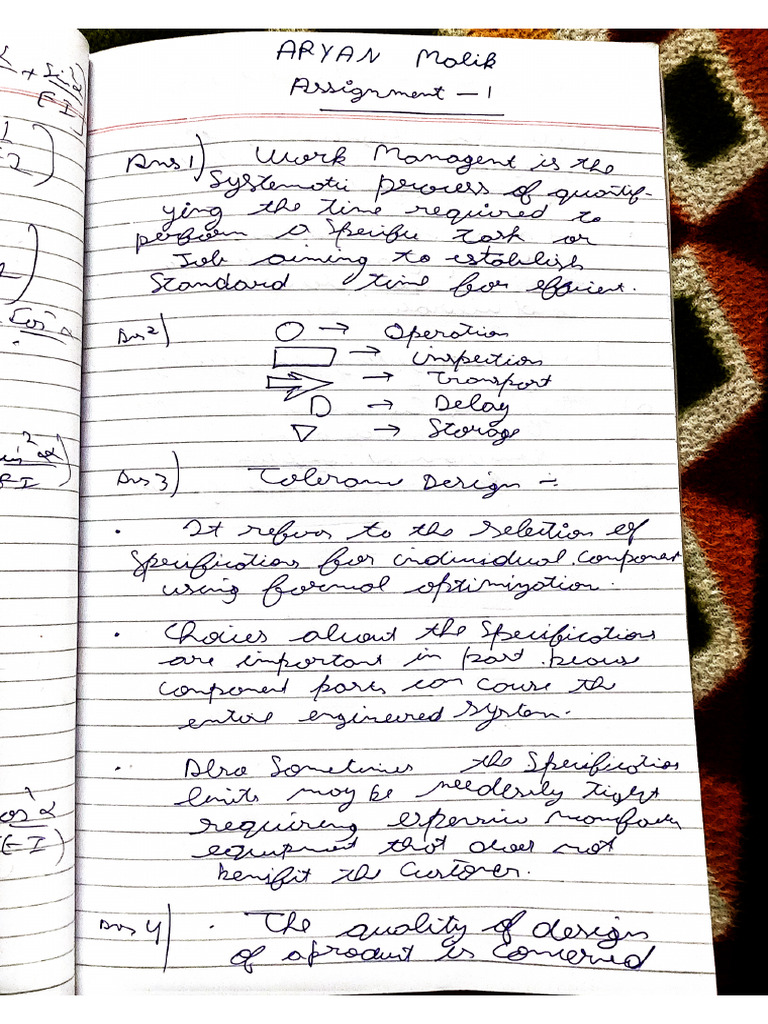 ARYAN Malik
Assignment - 1
Ans 1) Work Managent is the
Systematic process of quantif-
ying the time required to
perform a specific task or
Job aiming to establish
Standard time for efficient.
Ans 2) ○ → Operation
▭ → inspection
⇒ → Transport
D → Delay
▽ → Storage
Ans 3) Design :-
• It refers to the selection of
specifications for individual component
using formal optimization.
• Choices about the specifications
are important in part
component parts can cause the
entire engineered system.
• Also sometimes the specification
limits may be tight
requiring
equipment that does not
benefit the customer.
Ans 4) • The quality of design
of a product is concerned
+ sin²α
EI
cos²α
sin²α
EI
cos²α
EI)